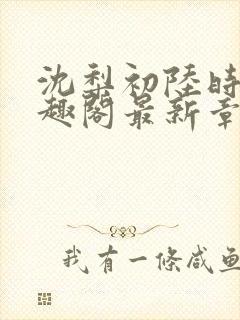 沈梨初陸時
趣閣最新章
我有一條咸魚